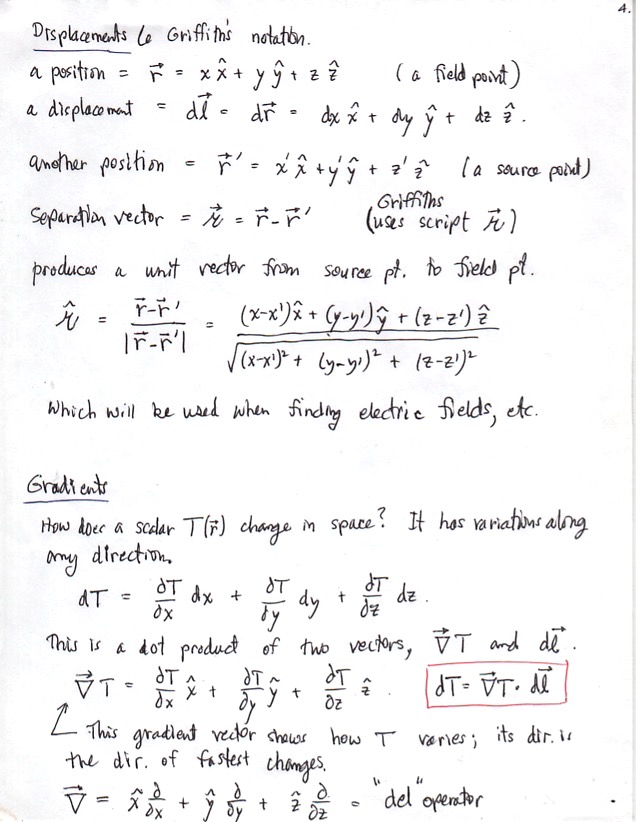 4.
Displacements & Griffith's notation.
a position = r⃗ = x x̂ + y ŷ + z ẑ (a field point)
a displacement = dl⃗ = dr⃗ = dx x̂ + dy ŷ + dz ẑ.
another position = r⃗' = x' x̂ + y' ŷ + z' ẑ (a source point)
Separation vector = 𝓇⃗ = r⃗ - r⃗' (Griffiths uses script 𝓇⃗)
produces a unit vector from source pt. to field pt.
𝓇̂ = (r⃗ - r⃗') / |r⃗ - r⃗'| = ((x-x')x̂ + (y-y')ŷ + (z-z')ẑ) / √((x-x')² + (y-y')² + (z-z')²)
which will be used when finding electric fields, etc.
Gradients
How does a scalar T(r⃗) change in space? It has variations along
any direction.
dT = ∂T/∂x dx + ∂T/∂y dy + ∂T/∂z dz.
This is a dot product of two vectors, ∇⃗T and dl⃗.
∇⃗T = ∂T/∂x x̂ + ∂T/∂y ŷ + ∂T/∂z ẑ. dT = ∇⃗T · dl⃗
This gradient vector shows how T varies; its dir. is
the dir. of fastest changes.
∇⃗ = x̂ ∂/∂x + ŷ ∂/∂y + ẑ ∂/∂z = "del" operator